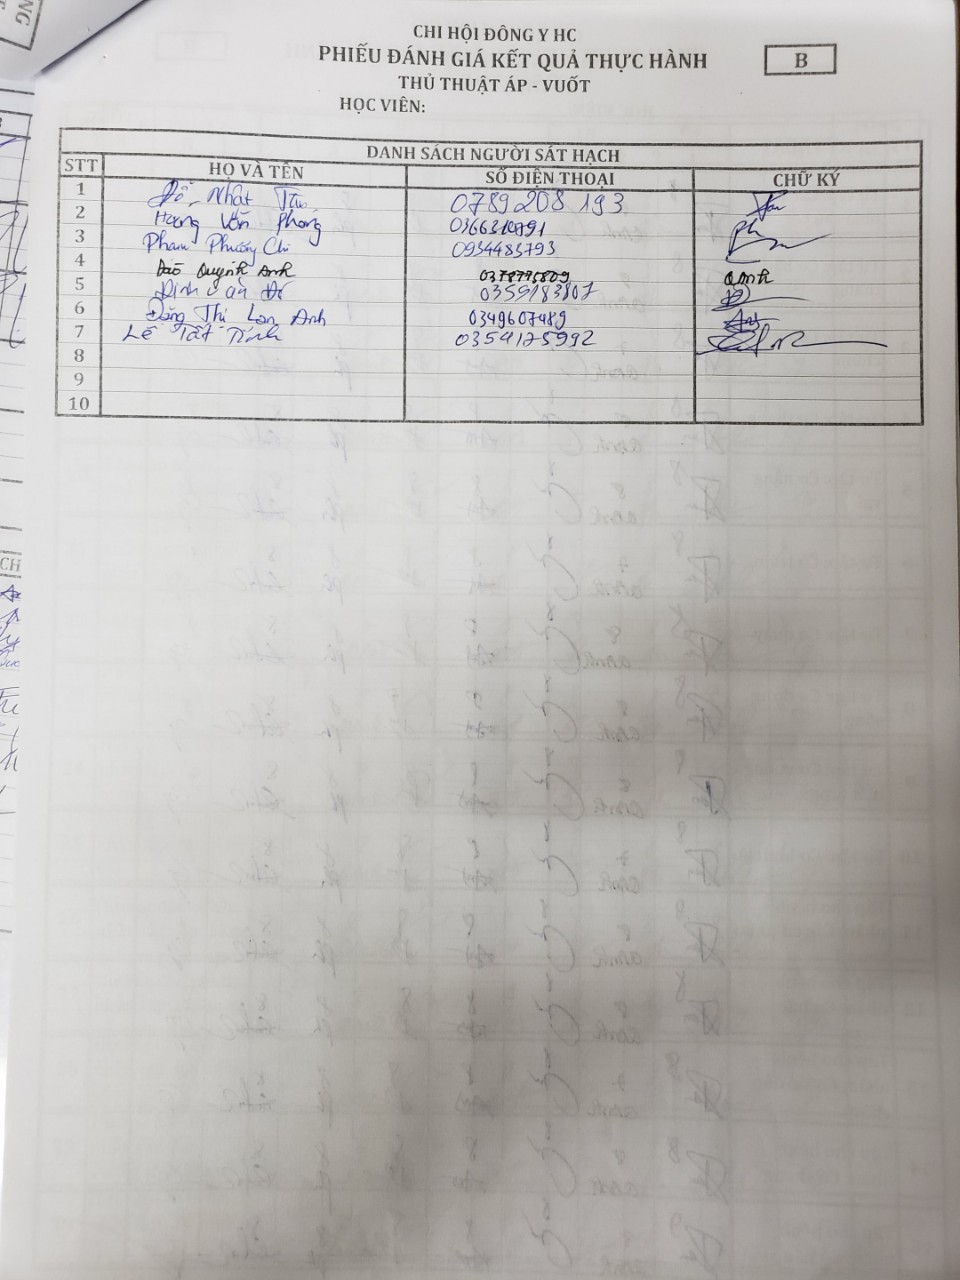 CHI HỘI ĐÔNG Y HC
PHIẾU ĐÁNH GIÁ KẾT QUẢ THỰC HÀNH
B
THỦ THUẬT ÁP - VUỐT
HỌC VIÊN:
DANH SÁCH NGƯỜI SÁT HẠCH
STT HỌ VÀ TÊN SỐ ĐIỆN THOẠI CHỮ KÝ
1 Đỗ Nhật 0789208193
2 Hoàng Văn Phong
3 Phạm Phương Chi 0934483793
4 Đào Quỳnh Anh Qanh
5 Đinh 0359183807
6 Đặng Thị Lan Anh 0349607489
7 Lê Tất Tính 0354175992
8
9
10
NG
CH